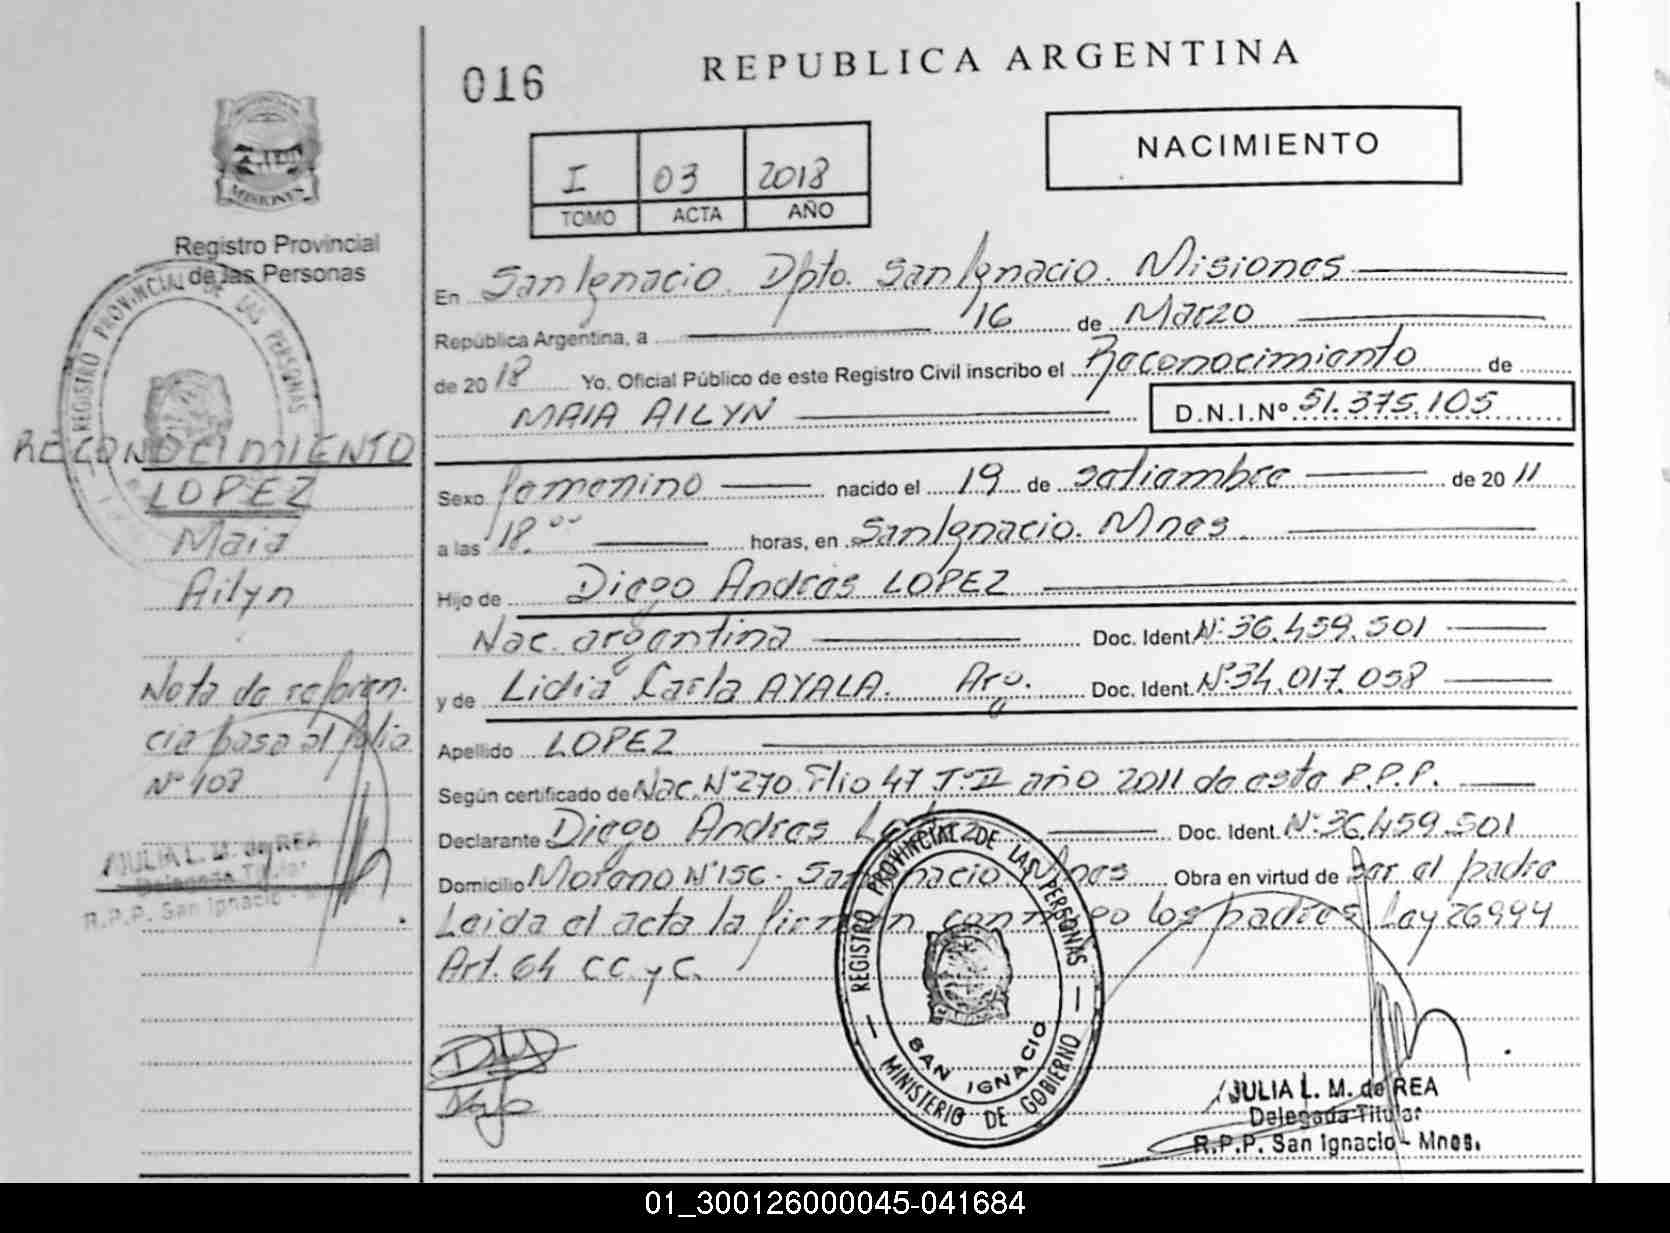 016
REPUBLICA ARGENTINA
NACIMIENTO
I 03 2018
TOMO ACTA AÑO
MISIONES
Registro Provincial
de las Personas
REGISTRO PROVINCIAL DE LAS PERSONAS
RECONOCIMIENTO
LOPEZ
Maia
Ailyn
Nota de referen-
cia pasa al folio
Nº 108
JULIA L. M. de REA
Delegada Titular
R.P.P. San Ignacio -
En San Ignacio. Dpto. San Ignacio. Misiones
República Argentina, a 16 de Marzo
de 2018 Yo. Oficial Público de este Registro Civil inscribo el Reconocimiento de
MAIA AILYN D.N.I.Nº 51.375.105
Sexo femenino nacido el 19 de setiembre de 2011
a las 18.00 horas, en San Ignacio. Mnes
Hijo de Diego Andres LOPEZ
Nac. argentina Doc. Ident Nº 36.459.501
y de Lidia Carla AYALA. Arg. Doc. Ident. Nº 34.017.058
Apellido LOPEZ
Según certificado de Nac. Nº 270 Flio 47 Tº II año 2011 de esta R.P.P.
Declarante Diego Andres Lopez Doc. Ident. Nº 36.459.501
Domicilio Moreno Nº 150. San Ignacio. Mnes Obra en virtud de ser el padre
Leida el acta la firman conmigo los padres Ley 26994
Art. 64 CC. y C.
REGISTRO PROVINCIAL DE LAS PERSONAS
SAN IGNACIO
MINISTERIO DE GOBIERNO
JULIA L. M. de REA
Delegada Titular
R.P.P. San Ignacio - Mnes.
01_300126000045-041684